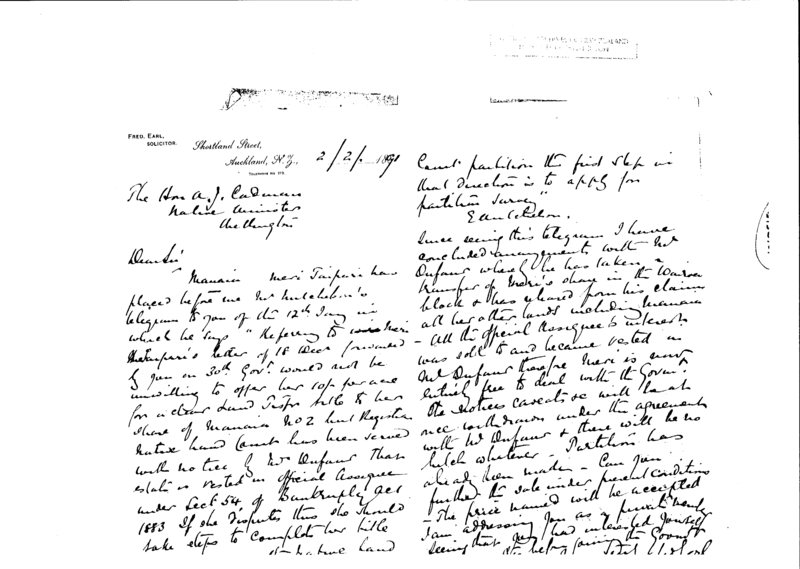 FRED. EARL,
SOLICITOR.
Shortland Street,
Auckland, N.Z. 2/2/1891
TELEPHONE NO.
The Hon A. J. Cadman
Native Minister
Wellington
Dear Sir
Manaia Meri Taipari has
placed before me Mr
telegram to you of the 12th Jany in
which he says "Referring to Meri
Taipari's letter of 18 Decr forwarded
by you on 30th Govt would not be
unwilling to offer her 10/- per acre
for a clear Land Tsfr title to her
share of Manaia No 2 but Registrar
Native Land Court has been served
with notice by Mr Dufaur that
estate is vested in official Assignee
under Sect 54 of Bankruptcy Act
1883 If she disputes this she should
take steps to complete her title
Native Land
Court partition the first step in
that direction is to apply for
partition survey"
Since seeing this telegram I have
concluded arrangements with Mr
Dufaur whereby he has taken a
transfer of Meri's share in the Wairoa
block & has released from his claims
all her other lands including Manaia
- All the official Assignee's interests
was sold to and became vested in
Mr Dufaur therefore Meri is now
entirely free to deal with the Govt.
The notices caveat &c will be at
once withdrawn under the agreement
with Mr Dufaur & there will be no
hitch whatever - Partition has
already been made - Can you
further the sale under present conditions
- The price named will be accepted
I am addressing you as a private member
seeing that you had interested yourself
before joining the Govmt